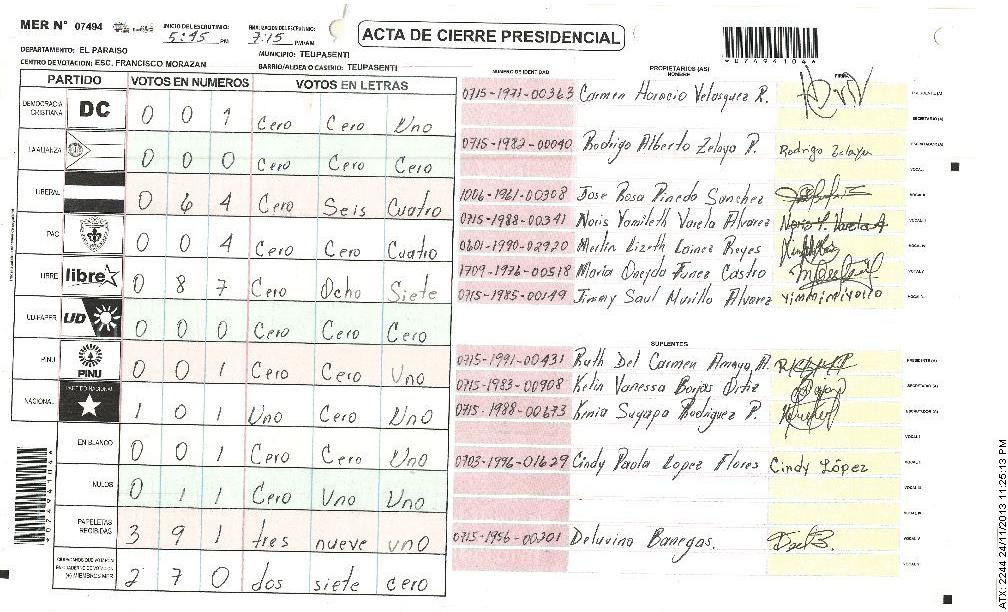 MER Nº 07494 INICIO DEL ESCRUTINIO: 5:45 PM FINALIZACION DEL ESCRUTINIO: 7:15 PM/AM
ACTA DE CIERRE PRESIDENCIAL
*07494104*
DEPARTAMENTO: EL PARAISO MUNICIPIO: TEUPASENTI
CENTRO DE VOTACION: ESC. FRANCISCO MORAZAN BARRIO/ALDEA O CASERIO: TEUPASENTI
PARTIDO VOTOS EN NUMEROS VOTOS EN LETRAS
DEMOCRACIA CRISTIANA DC 0 0 1 Cero Cero Uno
LA ALIANZA 0 0 0 Cero Cero Cero
LIBERAL 0 6 4 Cero Seis Cuatro
PAC 0 0 4 Cero Cero Cuatro
LIBRE libre 0 8 7 Cero Ocho Siete
UD-FAPER UD 0 0 0 Cero Cero Cero
PINU PINU 0 0 1 Cero Cero Uno
NACIONAL PARTIDO NACIONAL 1 0 1 Uno Cero Uno
EN BLANCO 0 0 1 Cero Cero Uno
NULOS 0 1 1 Cero Uno Uno
PAPELETAS RECIBIDAS 3 9 1 tres nueve uno
(+) MIEMBROS MER 2 7 0 dos siete cero
*07494104*
NUMERO DE IDENTIDAD PROPIETARIOS (AS) NOMBRE FIRMA
0715-1971-00363 Carmen Horacio Velasquez R. PRESIDENTE (A)
SECRETARIO (A)
0715-1982-00040 Rodrigo Alberto Zelaya P. Rodrigo Zelaya ESCRUTADOR (A)
VOCAL I
1006-1961-00308 Jose Rosa Pinedo Sanchez VOCAL II
0715-1988-00341 Noris Yamileth Varela Alvarez Noris Y. Varela A VOCAL III
0601-1990-02920 Merlin Lizeth Lainez Reyes VOCAL IV
1709-1976-00518 Maria Oneyda Funez Castro VOCAL V
0715-1985-00149 Jimmy Saul Murillo Alvarez VOCAL VI
SUPLENTES
0715-1991-00431 Ruth Del Carmen Amaya A. PRESIDENTE (A)
0715-1983-00908 Kelin Vanessa Borjas Ortiz SECRETARIO (A)
0715-1988-00673 Kenia Suyapa Rodriguez P. ESCRUTADOR (A)
VOCAL I
0703-1996-01629 Cindy Paola Lopez Flores Cindy López VOCAL II
VOCAL III
VOCAL IV
0715-1956-00201 Deluvina Banegas. VOCAL V
VOCAL VI
ATX: 2244 24/11/2013 11:25:13 PM